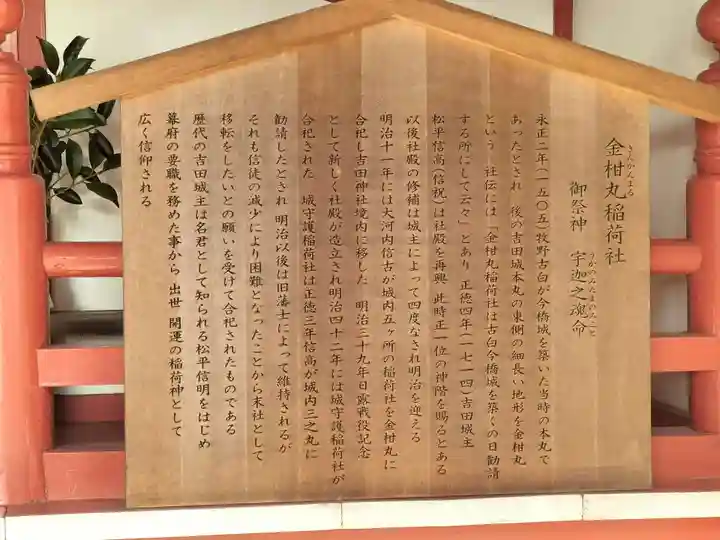 金柑丸稲荷社
きんかんまる
御祭神 宇迦之魂命
うかのみたまのみこと
永正二年(一五〇五)牧野古白が今橋城を築いた当時の本丸で
あったとされ 後の吉田城本丸の東側の細長い地形を金柑丸
という 社伝には「金柑丸稲荷社は古白今橋城を築くの日勧請
する所にして云々」とあり 正徳四年(一七一四)吉田城主
松平信高(信祝)は社殿を再興 此時正一位の神階を賜るとある
以後社殿の修補は城主によって四度なされ明治を迎える
明治十一年には大河内信古が城内五ヶ所の稲荷社を金柑丸に
合祀し吉田神社境内に移した 明治三十九年日露戦役記念
として新しく社殿が造立され明治四十二年には城守護稲荷社が
合祀された 城守護稲荷社は正徳三年信高が城内三之丸に
勧請したとされ 明治以後は旧藩士によって維持されるが
それも信徒の減少により困難となったことから末社として
移転をしたいとの願いを受けて合祀されたものである
歴代の吉田城主は名君として知られる松平信明をはじめ
幕府の要職を務めた事から 出世 開運の稲荷神として
広く信仰される